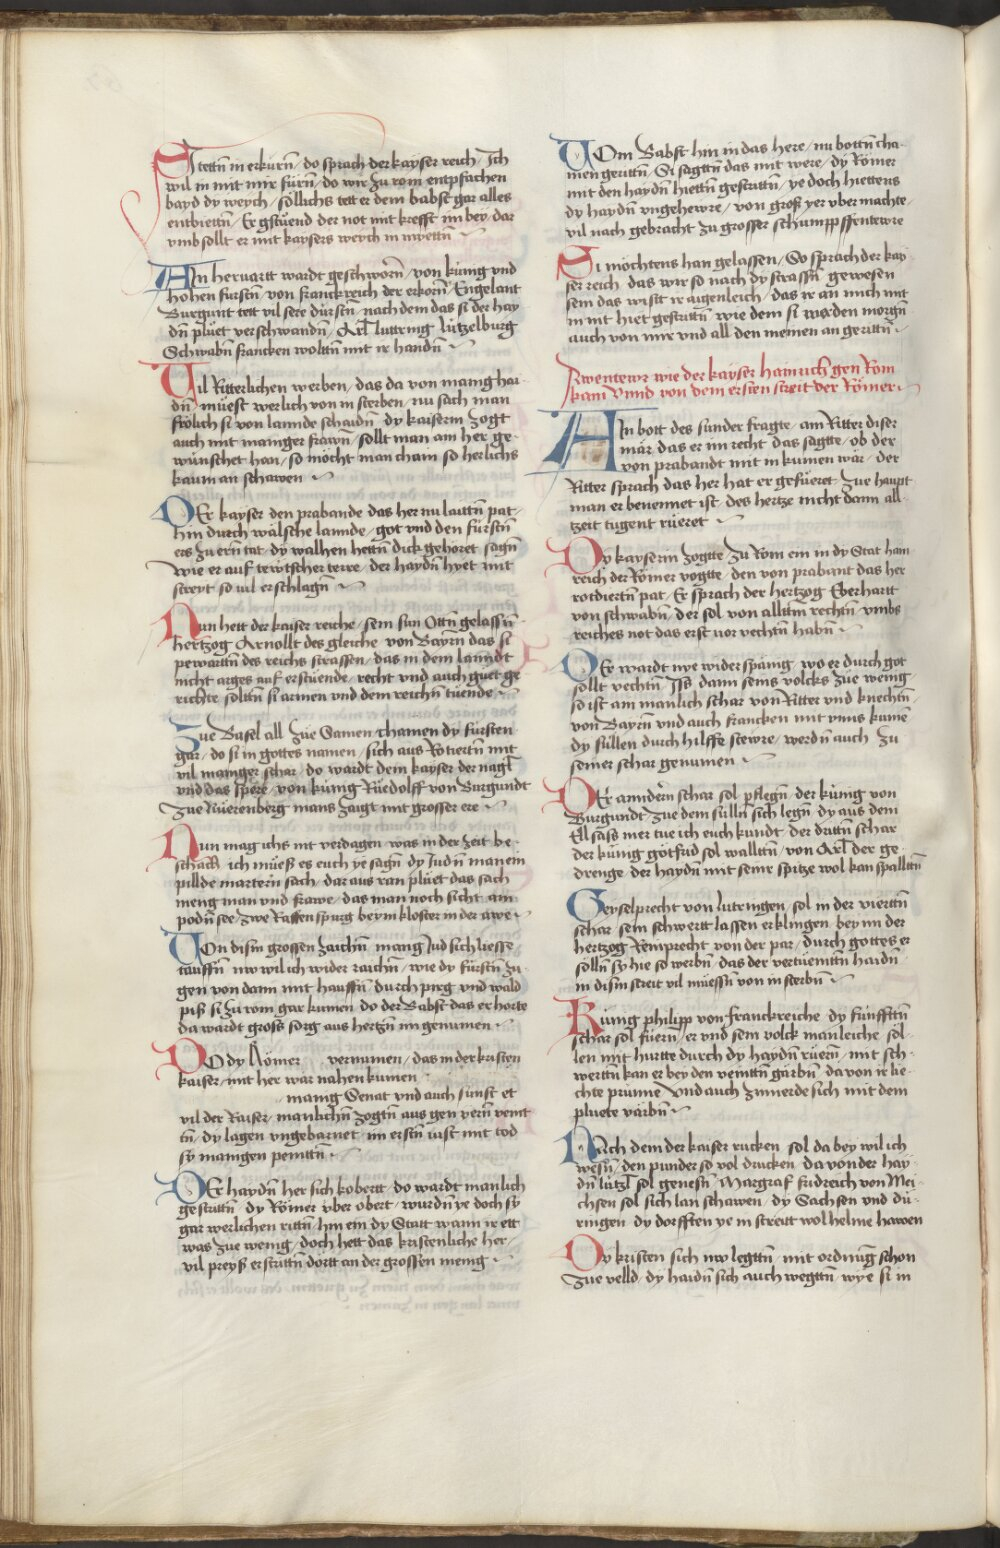 Si tettn̄ in erkürn̄ / do sprach der kayser reich / Ich
wil in mit mir fürn̄ / do wir zu rom entpfachen
bayd dy weych / söllichs tett er dem babst gar alles
enbiettn̄ / Er gstuend der not mit krefft im bey / dar
vmb sollt er mit kaysers weych in miettn̄
Ain heruartt wardt geschworn̄ / von künig vnd
hohen fürstn̄ / von franckreich der erkorn̄ / Engelant
Burgunt tett vil sere dürstn̄ / nach dem das si der hay
dn̄ pluet verschwandn̄ / Arl luttring lützelburg
Schwabn̄ francken woltn̄ mit ir handn̄
Vil Ritterlichen werben / das da von manig hai
dn̄ müest werlich von in sterben / nu sach man
frölich si von lannde schaidn̄ / dy kaiserin zogt
auch mit maniger frawn / sollt man ain her ge
wunschet han / so möcht man cham so herlichs
kaum an schawen
Der kayser den prabande das her nu lauttn̄ pat
hin durch wälsche lannde / got vnd den fürstn̄
ers zu ern̄ tat / dy walhen hettn̄ dick gehöret sagn̄
wie er auf tewtscher terre / der haydn̄ hyet mit
streyt so vil erschlagn̄
Nun hett der kaiser reiche / sein sun Ottn̄ gelassn̄
hertzog Arnollt des gleiche von Bayrn̄ das si
pewarttn̄ des reichs strassen / das in dem lanndt
nicht arges auf erstüende / recht vnd auch guet ge
richte soltn̄ si armen vnd dem reichn̄ tüende
Zue Basel all zue Samen chamen dy fürsten
gar / do si in gottes namen / sich aus Rotiertn̄ mit
vil maniger schar / do wardt dem kayser der nagl
vnd das spere / von künig Rüedolff von Burgundt
zue Nüerenberg mans zaigt mit grosser ere
Nun mag ichs nit verdagen was in der zeit be
schach ich müeß es euch ye sagn̄ dy Judn̄ manem
pillde martern sach / dar aus ran pluet das sach
meng man vnd frawe / das man noch sicht am
podn̄ see / zwe Raffenspurg beym kloster in der awe
Von disin grossen zaichn̄ manig Jud sich liesse
tauffn̄ nw wil ich wider raichn̄ / wie dy fürstn̄ zu
gen von dann mit hauffn̄ durch pirg vnd wald
piß si zu rom gar kumen do der Babst das erhorte
da wardt gross sorg aus hertzn̄ im genumen
Do dy Römer vernumen / das in der kristen
kaiser / mit her war nahen kumen
manig Senat vnd auch sunst et
vil der Kaiser / manlichn̄ zogtn̄ aus gen vern̄ veint
tn̄ / dy lagen vngebarnet im erstn̄ iust mit tod
sy manigen peinttn̄
Der haydn̄ her sich kobertt / do wardt manlich
gestrittn̄ / dy Römer vber obert / wurdn̄ ye doch sy
gar werlichen rittn̄ / hin ein dy Statt wann ir ett
was zue wenig / doch hett das kristenliche her /
vil preyß erstrittn̄ dortt an der grossen menig
Vom Babst hin in das here / nu bottn̄ cha
men gerittn̄ Si sagttn̄ das mit were / dy Römer
mit den haydn̄ hiettn̄ gestrittn̄ / ye doch hiettens
dy haydn̄ vngehewre / von groß yer vber machte
vil nach gebracht zu grosser schumppffentewre
Si möchtens han gelassen / So sprach der kay
ser reich / das wir so nach dy strassn̄ gewesen
sein das wisst ir aigenleich / das ir an mich nit
in nit hiet gestrittn̄ wie dem si werden morgn̄
auch von mir vnd all den meinen an gerittn̄
Awentewr wie der kayser hainrich gen Rom
kam Vnnd von dem ersten streit der Römer
Ain bott des sunder fragte / ain Ritter diser
mär das er im recht das sagtte / ob der
von prabandt mit in kumen wär / der
Ritter sprach das her hat er gefüeret zue haupt
man er benennet ist / des hertze nicht dann all
zeit tugent rüeret
Dy kayserin zogtte zu Rom ein in dy Stat hain
reich der Römer vogtte / den von prabant das her
rotdiertn̄ pat / Er sprach der hertzog Eberhartt
von schwabn̄ / der sol von alltm̄ rechtn̄ vmbs
reiches not das erst vor vechtn̄ habn̄
Er wardt nye widerspänig wo er durch got
sollt vechtn̄ Iss dann seins volcks zue wenig
so ist ain manlich schar von Ritter vnd knechtn̄
von Bayrn̄ vnd auch francken mit vnns kumē
dy süllen durch hilffe stewre / werdn̄ auch zu
seiner schar genumen
Der anndern schar sol pflegn̄ der künig von
Burgundt / zue dem sulln̄ sich legn̄ dy aus dem
Elsäss mer tue ich euch kundt / der drittn̄ schar
der künig götfrid sol walltn̄ / von Arl der ge
drenge der haydn̄ mit seine spitze wol kan spalltn̄
Geyselprecht von lutringen / sol in der viertn̄
schar sein schwertt lassen erklingen / bey im der
hertzog Remprecht von der par / durch gottes er
sölln̄ sy hie so werbn̄ / das der vertüemttn̄ haidn̄
in disin streit vil müessn̄ von in sterbn̄
Künig philipp von franckreiche dy fünfftn̄
schar sol füern / er vnd sein volck manleiche sol
len mit hurtte durch dy haydn̄ rüern̄ / mit sch
werttn̄ kan er bey den veinttn̄ garbn̄ / da von ir lie
chte prunne Vnd auch zimerde sich mit dem
pluete värbn̄
Nach dem der kaiser rucken sol da bey wil ich
wesn̄ / den punder so vol drucken / da von der hay
dn̄ lützl sol genesn̄ / Margraf fridreich von Mei
chsen sol sich lan schawen / dy Sachsen vnd dü
ringen dy dorfften ye in streitt wol helme hawen
Dy kristen sich nw legttn̄ / mit ordnūg schon
zue velld / dy haidn̄ sich auch wegttn̄ wye si in